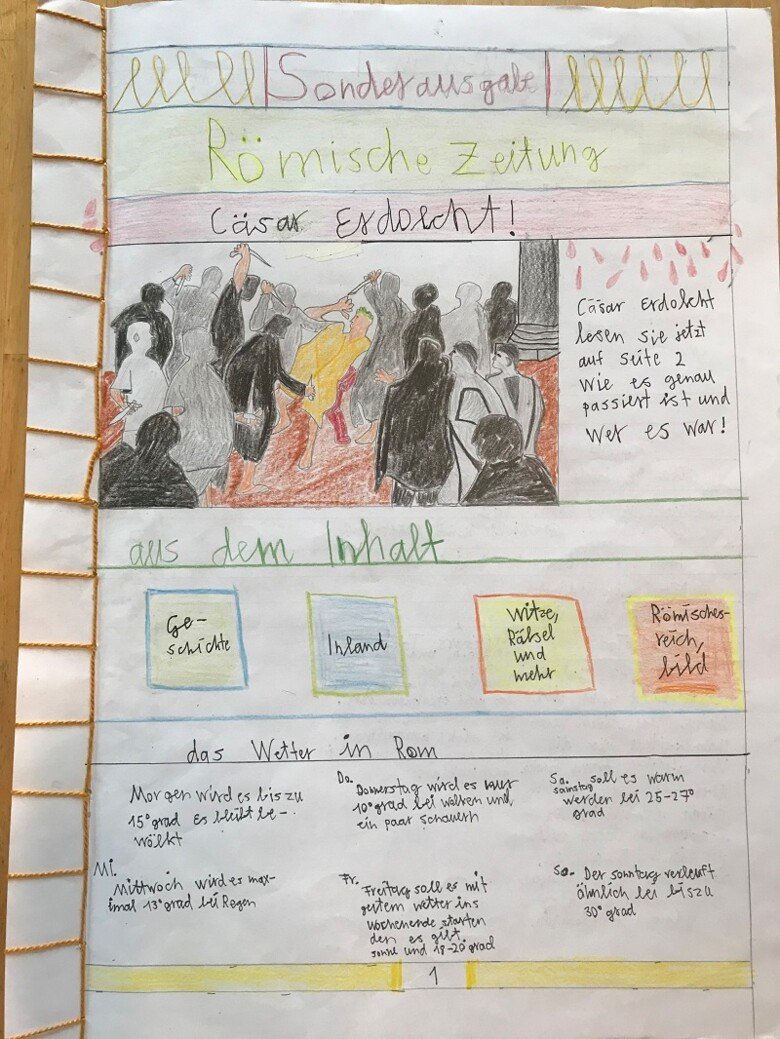 Sonderausgabe
Römische Zeitung
Cäsar Erdolcht!
Cäsar Erdolcht
lesen sie jetzt
auf seite 2
wie es genau
passiert ist und
wer es war!
aus dem Inhalt
Ge-
schichte
Inland
Witze,
Rätsel
und
mehr
Römisches-
reich,
bild
das Wetter in Rom
Morgen wird es bis zu
15° grad Es bleibt be-
wölkt
Mi.
Mittwoch wird es max-
imal 13° grad bei Regen
Do.
Donnerstag wird es nur
10° grad bei wolken und
ein paar schauern
Fr.
Freitag soll es mit
gutem wetter ins
wochenende starten
den es gibt
sonne und 18-20 grad
Sa.
samstag soll es warm
werden bei 25-27°
grad
So. Der sonntag verleuft
ähnlich bei bis zu
30° grad
1